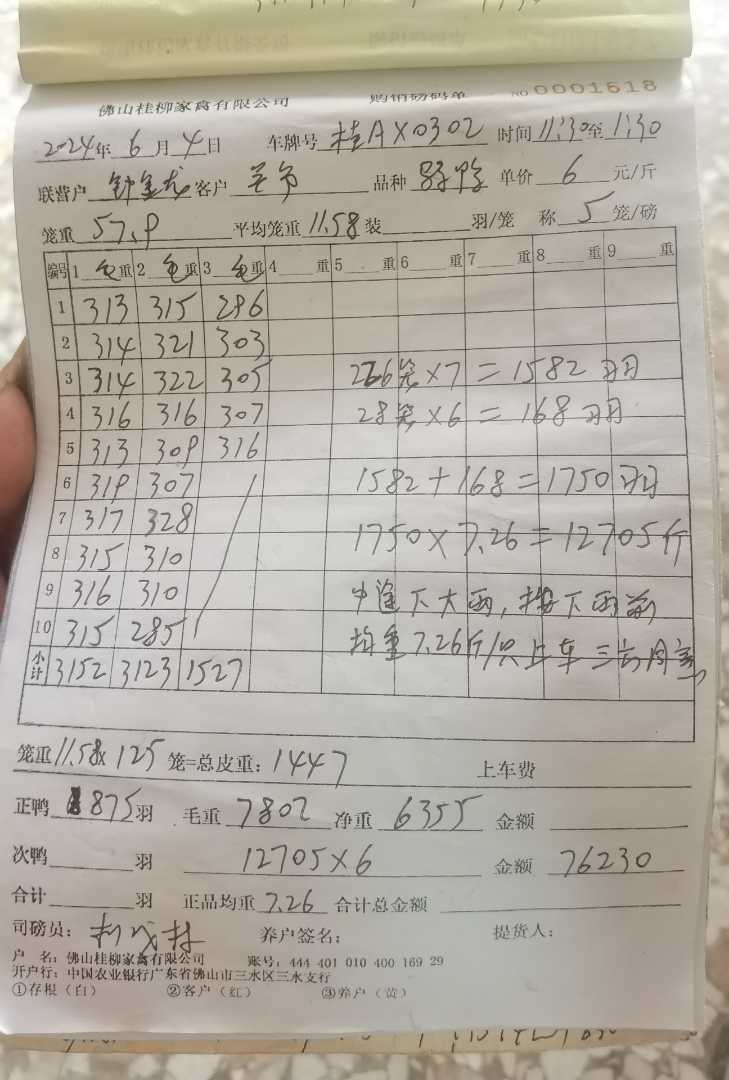 佛山桂柳家禽有限公司 购销磅码单 NO 0001518
2024年 6 月 4 日 车牌号 桂AX0302 时间 11:30至 1:30
联营户 客户 品种 单价 6 元/斤
笼重 57.9 平均笼重 11.58 装 羽/笼 称 5 笼/磅
编号 1 毛重 2 毛重 3 毛重 4 重 5 重 6 重 7 重 8 重 9 重
1 313 315 286
2 314 321 303
3 314 322 305 226笼×7=1582羽
4 316 316 307 28笼×6=168羽
5 313 309 316
6 319 307 1582+168=1750羽
7 317 328
8 315 310 1750×7.26=12705斤
9 316 310 中途下大雨，按下雨前
10 315 285 均重7.26斤/只上车
小计 3152 3123 1527
笼重 11.58× 125 笼=总皮重：1447 上车费
正鸭 875 羽 毛重 7802 净重 6355 金额
次鸭 羽 12705×6 金额 76230
合计 羽 正品均重 7.26 合计总金额
司磅员： 养户签名： 提货人：
户 名：佛山桂柳家禽有限公司 账号：444 401 010 400 169 29
开户行：中国农业银行广东省佛山市三水区三水支行
①存根（白） ②客户（红） ③养户（黄）